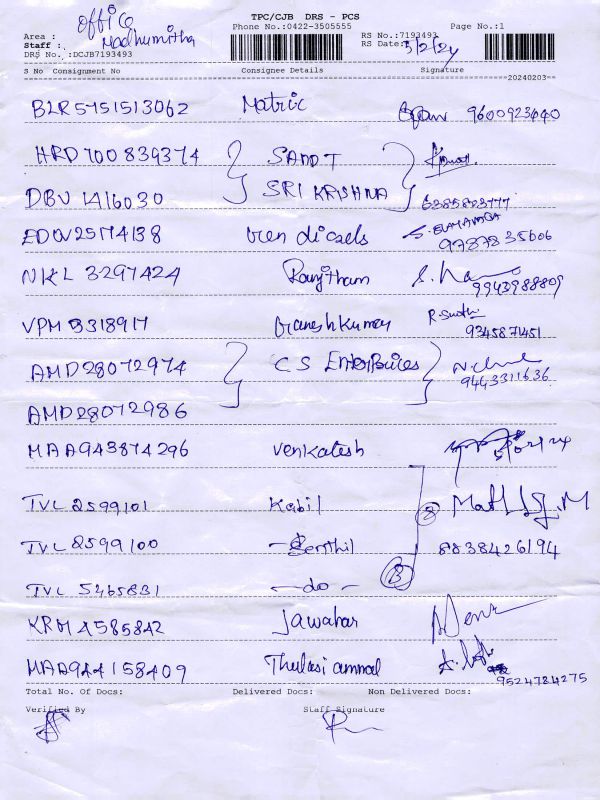 office
TPC/CJB DRS - PCS
Phone No.:0422-3505555
Page No.:1
Area :
Staff : Madhumitha
DRS No. :DCJB7193493
RS No.:7193493
RS Date: 3/2/24
S No Consignment No Consignee Details Signature
20240203
BLR5151513062 Matric 9600923040
HRD700839374 SANDT
DBU 1416030 SRI KRISHNA 6385823777
EDOU25174138 S. ELAMARAN
9787835606
NKL 3297424 Ranjitham
9943988809
VPM 3318917 Ganeshkumar R Sudhi
9345871451
AMD28072974 C S Enterprices
9443311636
AMD28072986
MAA943874296 Venkatesh
TVL 2599101 Kabil
TVL 2599100 Senthil 8838426194
TVL 5465831 - do - 
KRM 4585842 Jawahar
MAA944158409 Thulasi ammal
9524784275
Total No. Of Docs: Delivered Docs: Non Delivered Docs:
Verified By Staff Signature